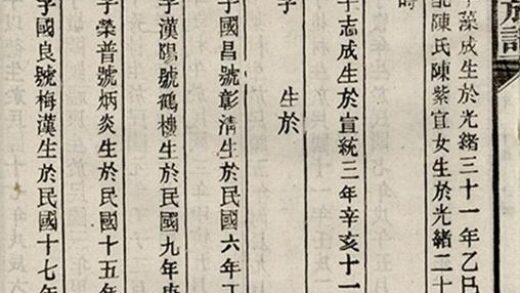 藻成生於光緒三十一年乙巳
配陳氏陳紫宜女生於光緒二十
時
字志成生於宣統三年辛亥十一
字 生於
字國昌號彰清生於民國六年丁
字漢陽號鶴樓生於民國九年庚
字榮普號炳炎生於民國十五年
字國良號梅漢生於民國十七年